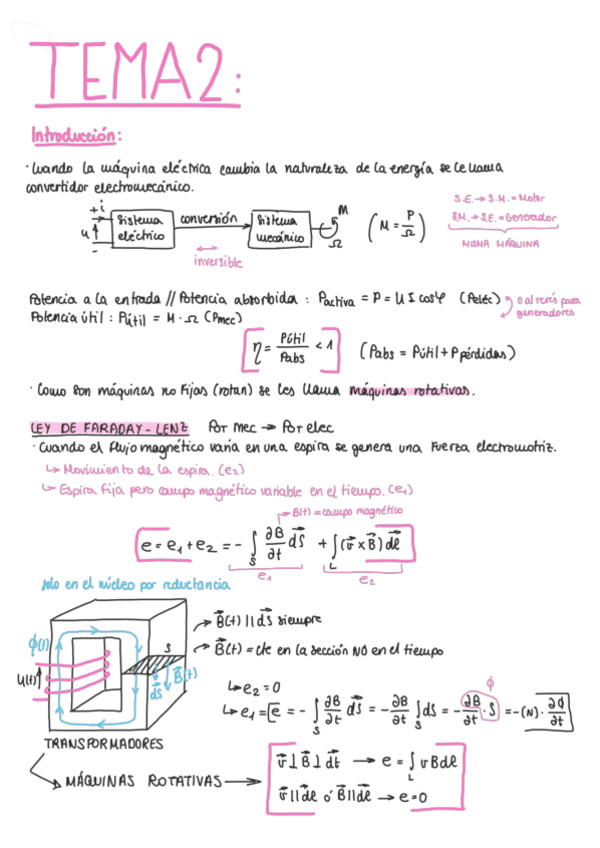 TEMA2:
Introducción:
· Cuando la máquina eléctrica cambia la naturaleza de la energía se le llama
convertidor electromecánico.
+ i
u
-
Sistema
eléctrico
conversión
inversible
Sistema
mecánico
M
Ω
(M = P/Ω)
S.E. → S.M. = Motor
S.M. → S.E. = Generador
MISMA MÁQUINA
Potencia a la entrada // Potencia absorbida : Pactiva = P = U I cosφ (Peléc)
o al revés para
generadores
Potencia útil : Pútil = M · Ω (Pmec)
η = Pútil/Pabs < 1
(Pabs = Pútil + Ppérdidas)
· Como son máquinas no fijas (rotan) se les llama máquinas rotativas.
LEY DE FARADAY - LENZ Por mec → Por elec
· Cuando el flujo magnético varía en una espira se genera una fuerza electromotriz.
↳ Movimiento de la espira. (e₂)
↳ Espira fija pero campo magnético variable en el tiempo. (e₁)
→ B(t) = campo magnético
e = e₁ + e₂ = - ∫S ∂B⃗/∂t dS⃗ + ∫L (v⃗ x B⃗) dℓ⃗
e₁
e₂
solo en el núcleo por reluctancia
ϕ(t)
u(t)
S
dS⃗
B⃗(t)
→ B⃗(t) || dS⃗ siempre
→ B⃗(t) = cte en la sección NO en el tiempo
↳ e₂ = 0
ϕ
↳ e₁ = e = - ∫S ∂B⃗/∂t dS⃗ = - ∂B/∂t ∫S dS = - ∂B/∂t · S = - (N) · ∂ϕ/∂t
TRANSFORMADORES
MÁQUINAS ROTATIVAS →
v⃗ ⊥ B⃗ ⊥ dt⃗ → e = ∫L v B dℓ
v⃗ || dℓ⃗ ó B⃗ || dℓ⃗ → e = 0